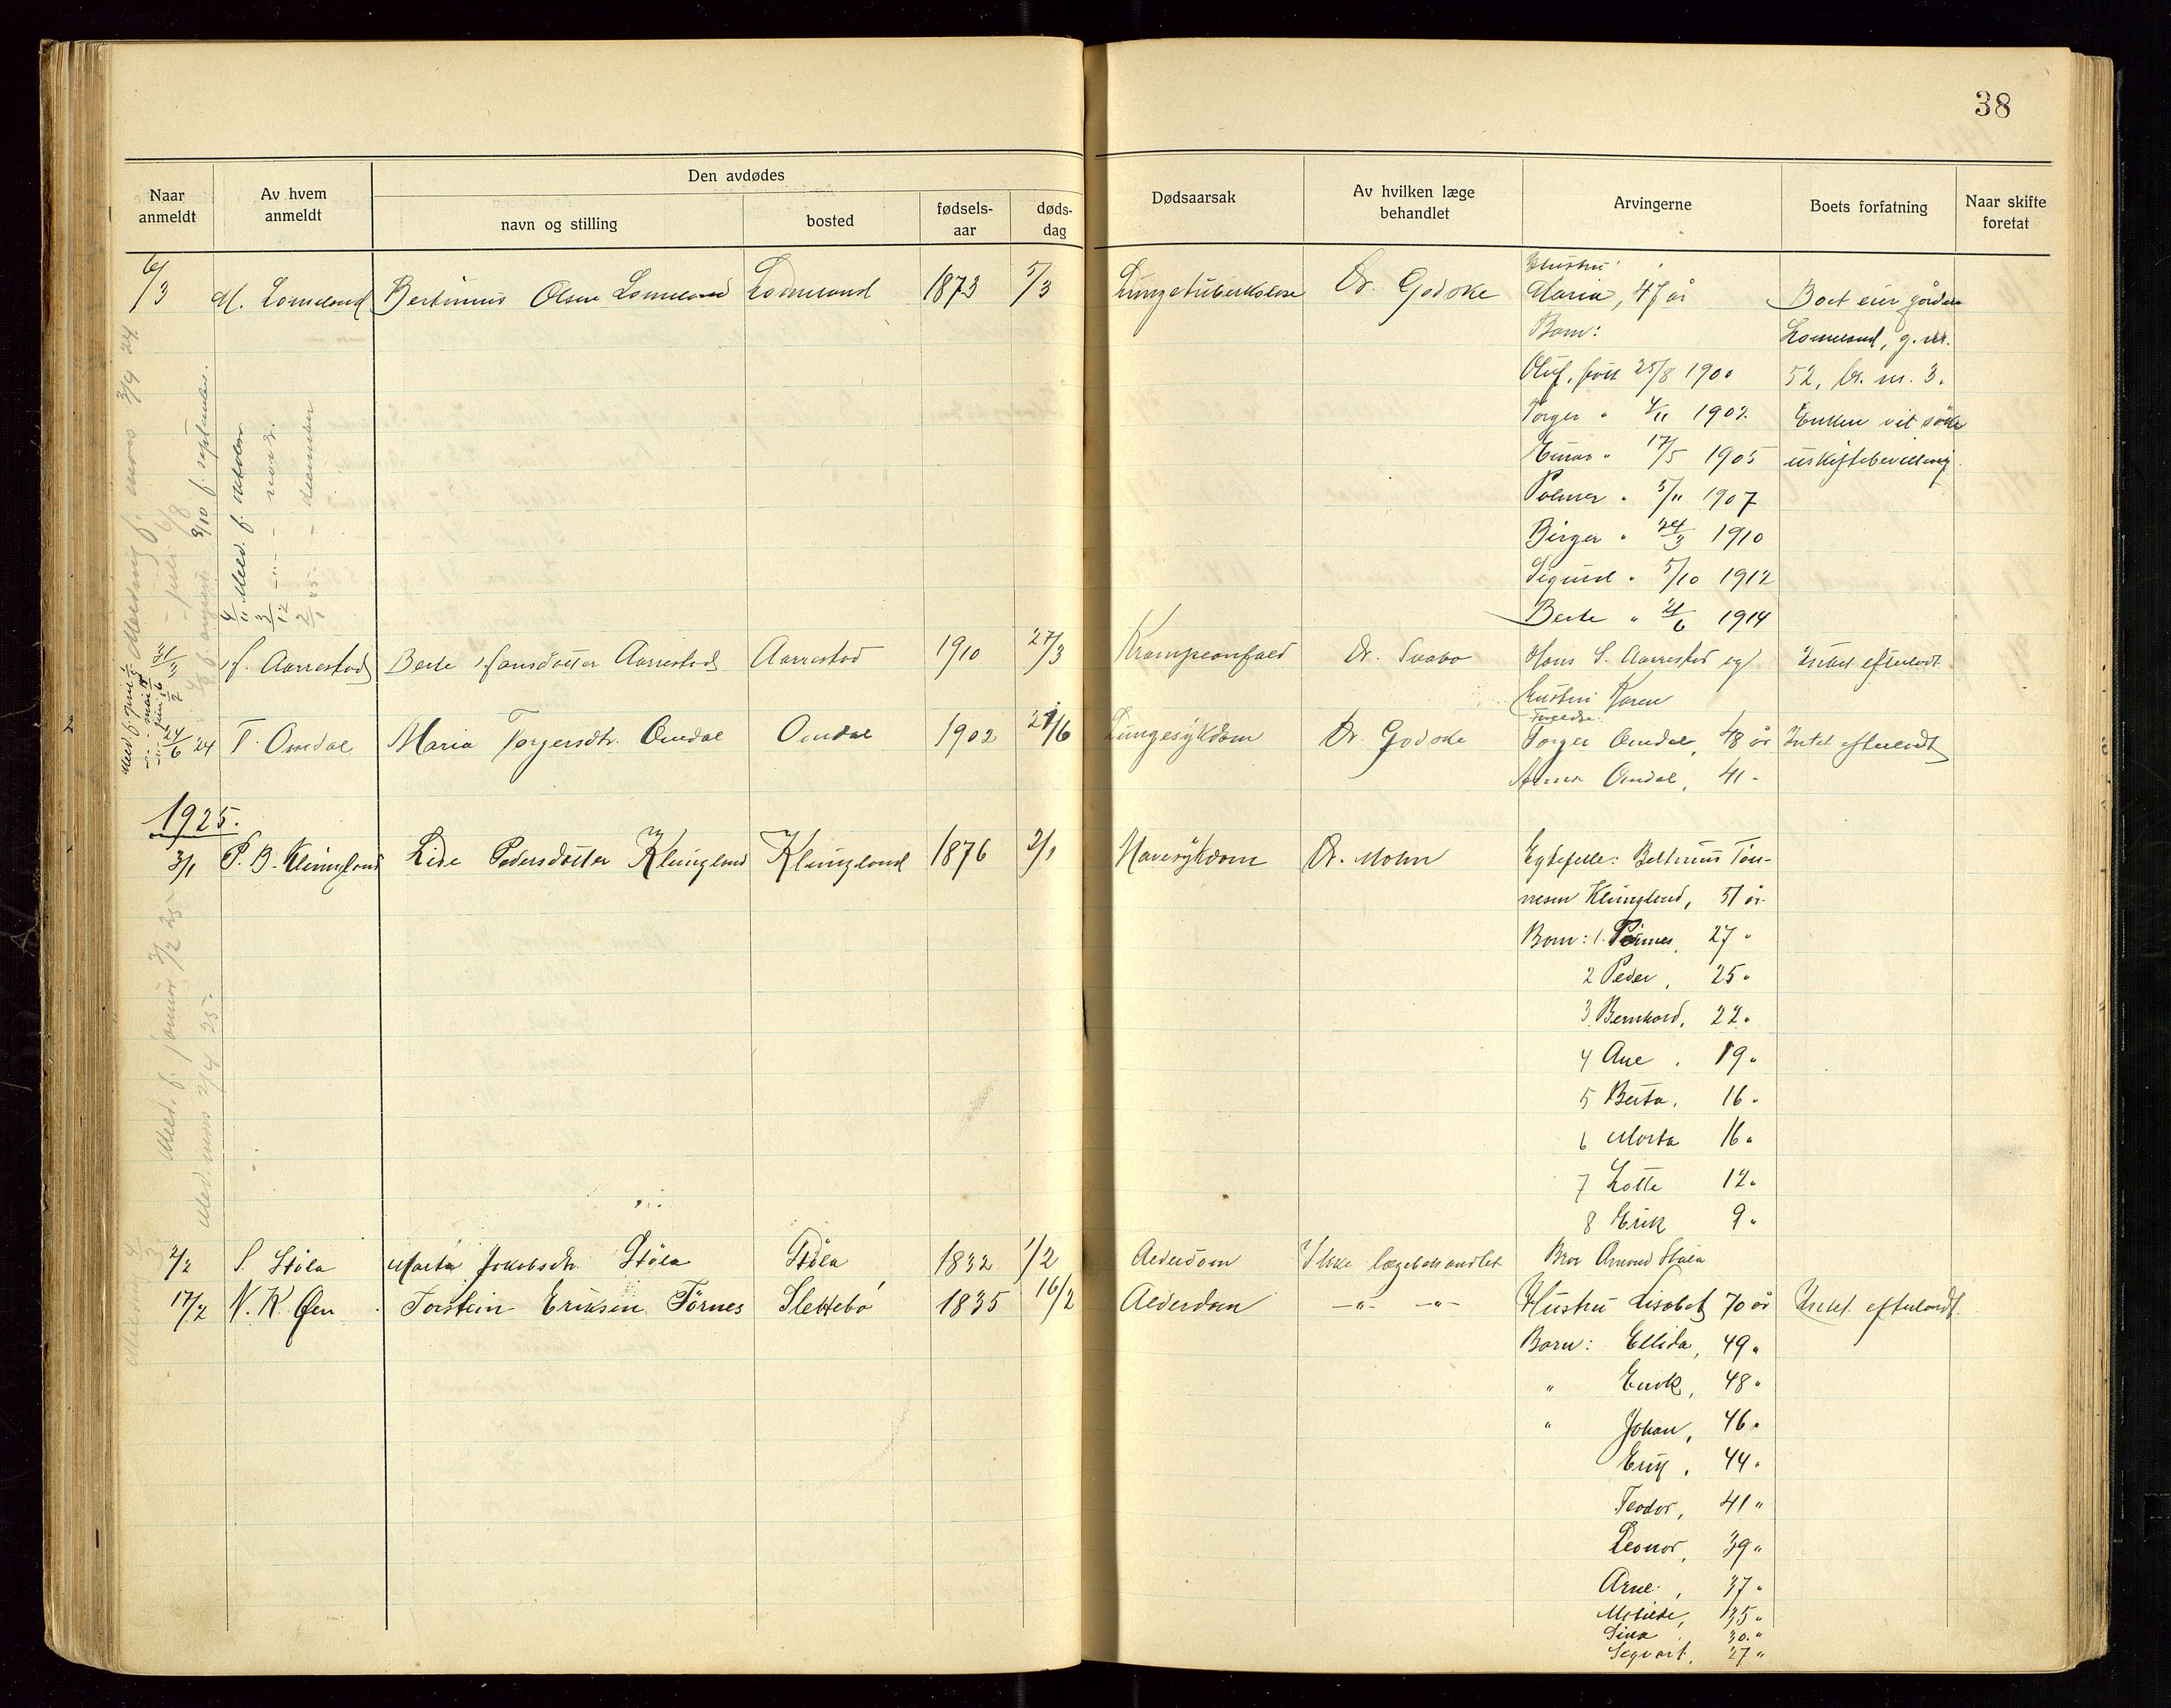 38
Naar anmeldt
Av hvem anmeldt
Den avdødes
navn og stilling
bosted
fødsels-aar
døds-dag
Dødsaarsak
Av hvilken læge behandlet
Arvingerne
Boets forfatning
Naar skifte foretat
6/3 M. Lomeland Bertinius Olsen Lomeland Lomeland 1873 5/3 Lungetuberkolose Dr. Godske Hustru
Maria, 47 år Boet eier gården
Born: Lomeland, g. nr.
Oluf, født 25/8 1900 52, br. nr. 3.
Torger " 4/11 1902 Enken vil söke
Einar " 17/5 1905 uskiftebevilling.
Palmer " 5/11 1907
Birger " 24/3 1910
Sigurd " 5/10 1912
Berte " 21/6 1914
Melding f. mars 3/4 24.
- juli 6/8
august 3/10 f. september.
4/11 Meld. f. oktober
3/12 -"- - novbr.
2/1 25 - desember
31/3 H. Aarrestad Berte Hansdotter Aarrestad Aarrestad 1910 27/3 Krampeanfald Dr. Svabo Hans S. Aarrestad og Intet efterladt
hustru Karen
Foreldre:
24/6 24 T. Omdal Maria Torgersdtr. Omdal Omdal 1902 21/6 Lungesykdom Dr. Godske Torger Omdal, 48 år Intet efterladt
Anna Omdal, 41 "
1925.
3/1 P. B. Klungland Lise Pedersdotter Klungland Klungland 1876 2/1 Mavesykdom Dr. Mohn Egtefelle: Beltinius Tön-
nesen Klungland, 51 år.
Born: 1. Tönnes, 27 "
2 Peder, 25 "
3 Bernhard, 22 "
4 Ane, 19 "
5 Berta, 16 "
6 Marta 16 "
7 Lotte 12 "
8 Erik 9 "
Meld. f. januar 3/2 25
Meld. mars 2/4 25
2/2 S. Støla Marta Jakobsdtr. Støla Støla 1832 1/2 Alderdom Ikke lægebehandlet Bror Amund Støla
17/2 N. K. Øen Torstein Eriksen Törnes Slettebö 1835 16/2 Alderdom -"- -"- Hustru Lisabet 70 år Intet efterladt.
Born: Ellida, 49 "
" Enok, 48 "
" Johan, 46 "
Erik, 44 "
Teodor, 41 "
Leonor, 39 "
Arne, 37 "
Matilde, 35 "
Sina 30 "
Segvart, 27 "